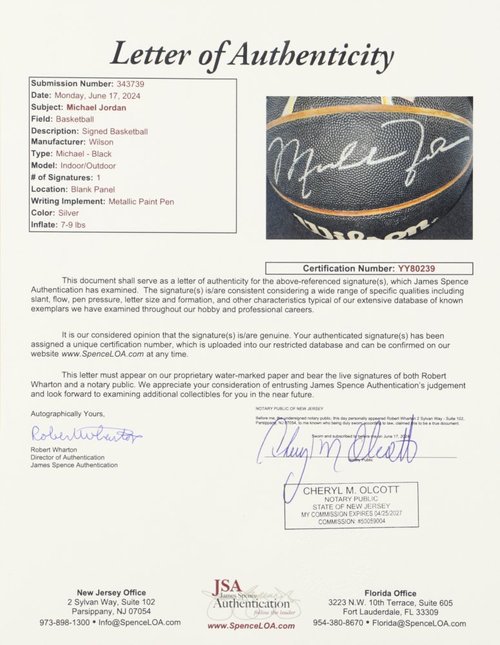 Letter of Authenticity
Submission Number: 343739
Date: Monday, June 17, 2024
Subject: Michael Jordan
Field: Basketball
Description: Signed Basketball
Manufacturer: Wilson
Type: Michael - Black
Model: Indoor/Outdoor
# of Signatures: 1
Location: Blank Panel
Writing Implement: Metallic Paint Pen
Color: Silver
Inflate: 7-9 lbs
Wilson
Certification Number: YY80239
This document shall serve as a letter of authenticity for the above-referenced signature(s), which James Spence
Authentication has examined. The signature(s) is/are consistent considering a wide range of specific qualities including
slant, flow, pen pressure, letter size and formation, and other characteristics typical of our extensive database of known
exemplars we have examined throughout our hobby and professional careers.
It is our considered opinion that the signature(s) is/are genuine. Your authenticated signature(s) has been
assigned a unique certification number, which is uploaded into our restricted database and can be confirmed on our
website www.SpenceLOA.com at any time.
This letter must appear on our proprietary water-marked paper and bear the live signatures of both Robert
Wharton and a notary public. We appreciate your consideration of entrusting James Spence Authentication's judgement
and look forward to examining additional collectibles for you in the near future.
Autographically Yours,
Robert Wharton
Robert Wharton
Director of Authentication
James Spence Authentication
NOTARY PUBLIC OF NEW JERSEY
Before me, the undersigned notary public, this day personally appeared Robert Wharton 2 Sylvan Way, - Suite 102,
Parsippany, NJ 07054, to me known who being duly sworn according to law, claimed this to be a true document.
Sworn and subscribed to before me on June 17, 2024
Cheryl M Olcott
CHERYL M. OLCOTT
NOTARY PUBLIC
STATE OF NEW JERSEY
MY COMMISSION EXPIRES 04/25/2027
COMMISSION: #50059004
New Jersey Office
2 Sylvan Way, Suite 102
Parsippany, NJ 07054
973-898-1300 • Info@SpenceLOA.com
JSA
James Spence
Authentication
follow the leader
www.SpenceLOA.com
Florida Office
3223 N.W. 10th Terrace, Suite 605
Fort Lauderdale, FL 33309
954-380-8670 • Florida@SpenceLOA.com